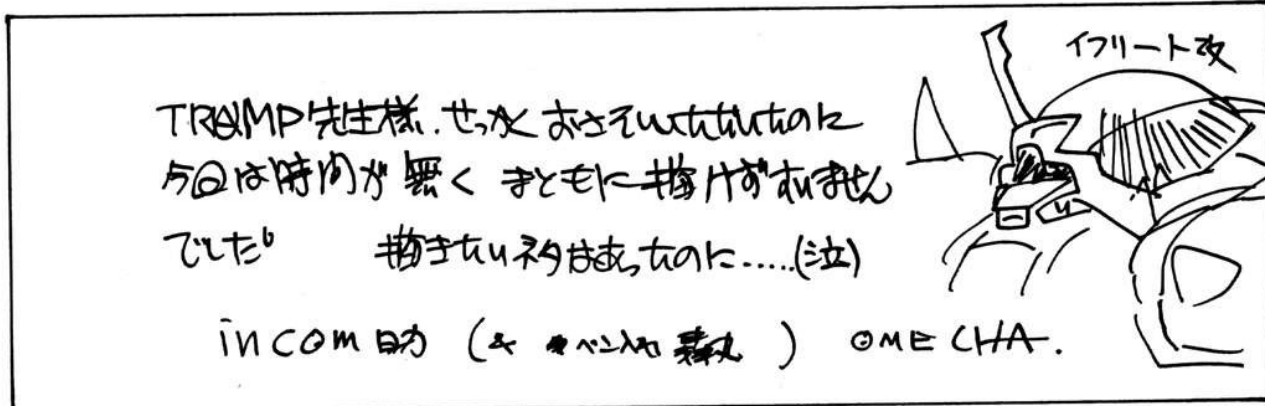 イフリート改
TRAMP先生様.せっかくおさそいいただいたのに
今回は時間が無くまともに描けずすいません
でした。 描きたいネタはあったのに.....(泡)
incom助 (& ペン入れ ) OMECHA.